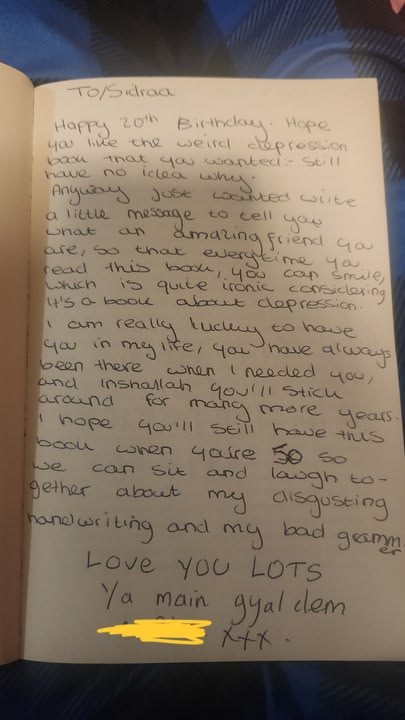 To/Sidraa
Happy 20th Birthday. Hope
you like the weird depression
book that you wanted:- still
have no idea why.
Anyway just wanted write
a little message to tell you
what an amazing friend you
are, so that everytime you
read this book, you can smile,
which is quite ironic considering
it's a book about depression.
I am really lucky to have
you in my life, you have always
been there when I needed you,
and Inshallah you'll stick
around for many more years.
I hope you'll still have this
book when you're 50 so
we can sit and laugh to-
gether about my disgusting
handwriting and my bad gramm
er
LOVE YOU LOTS
Ya main gyal dem
xxx.